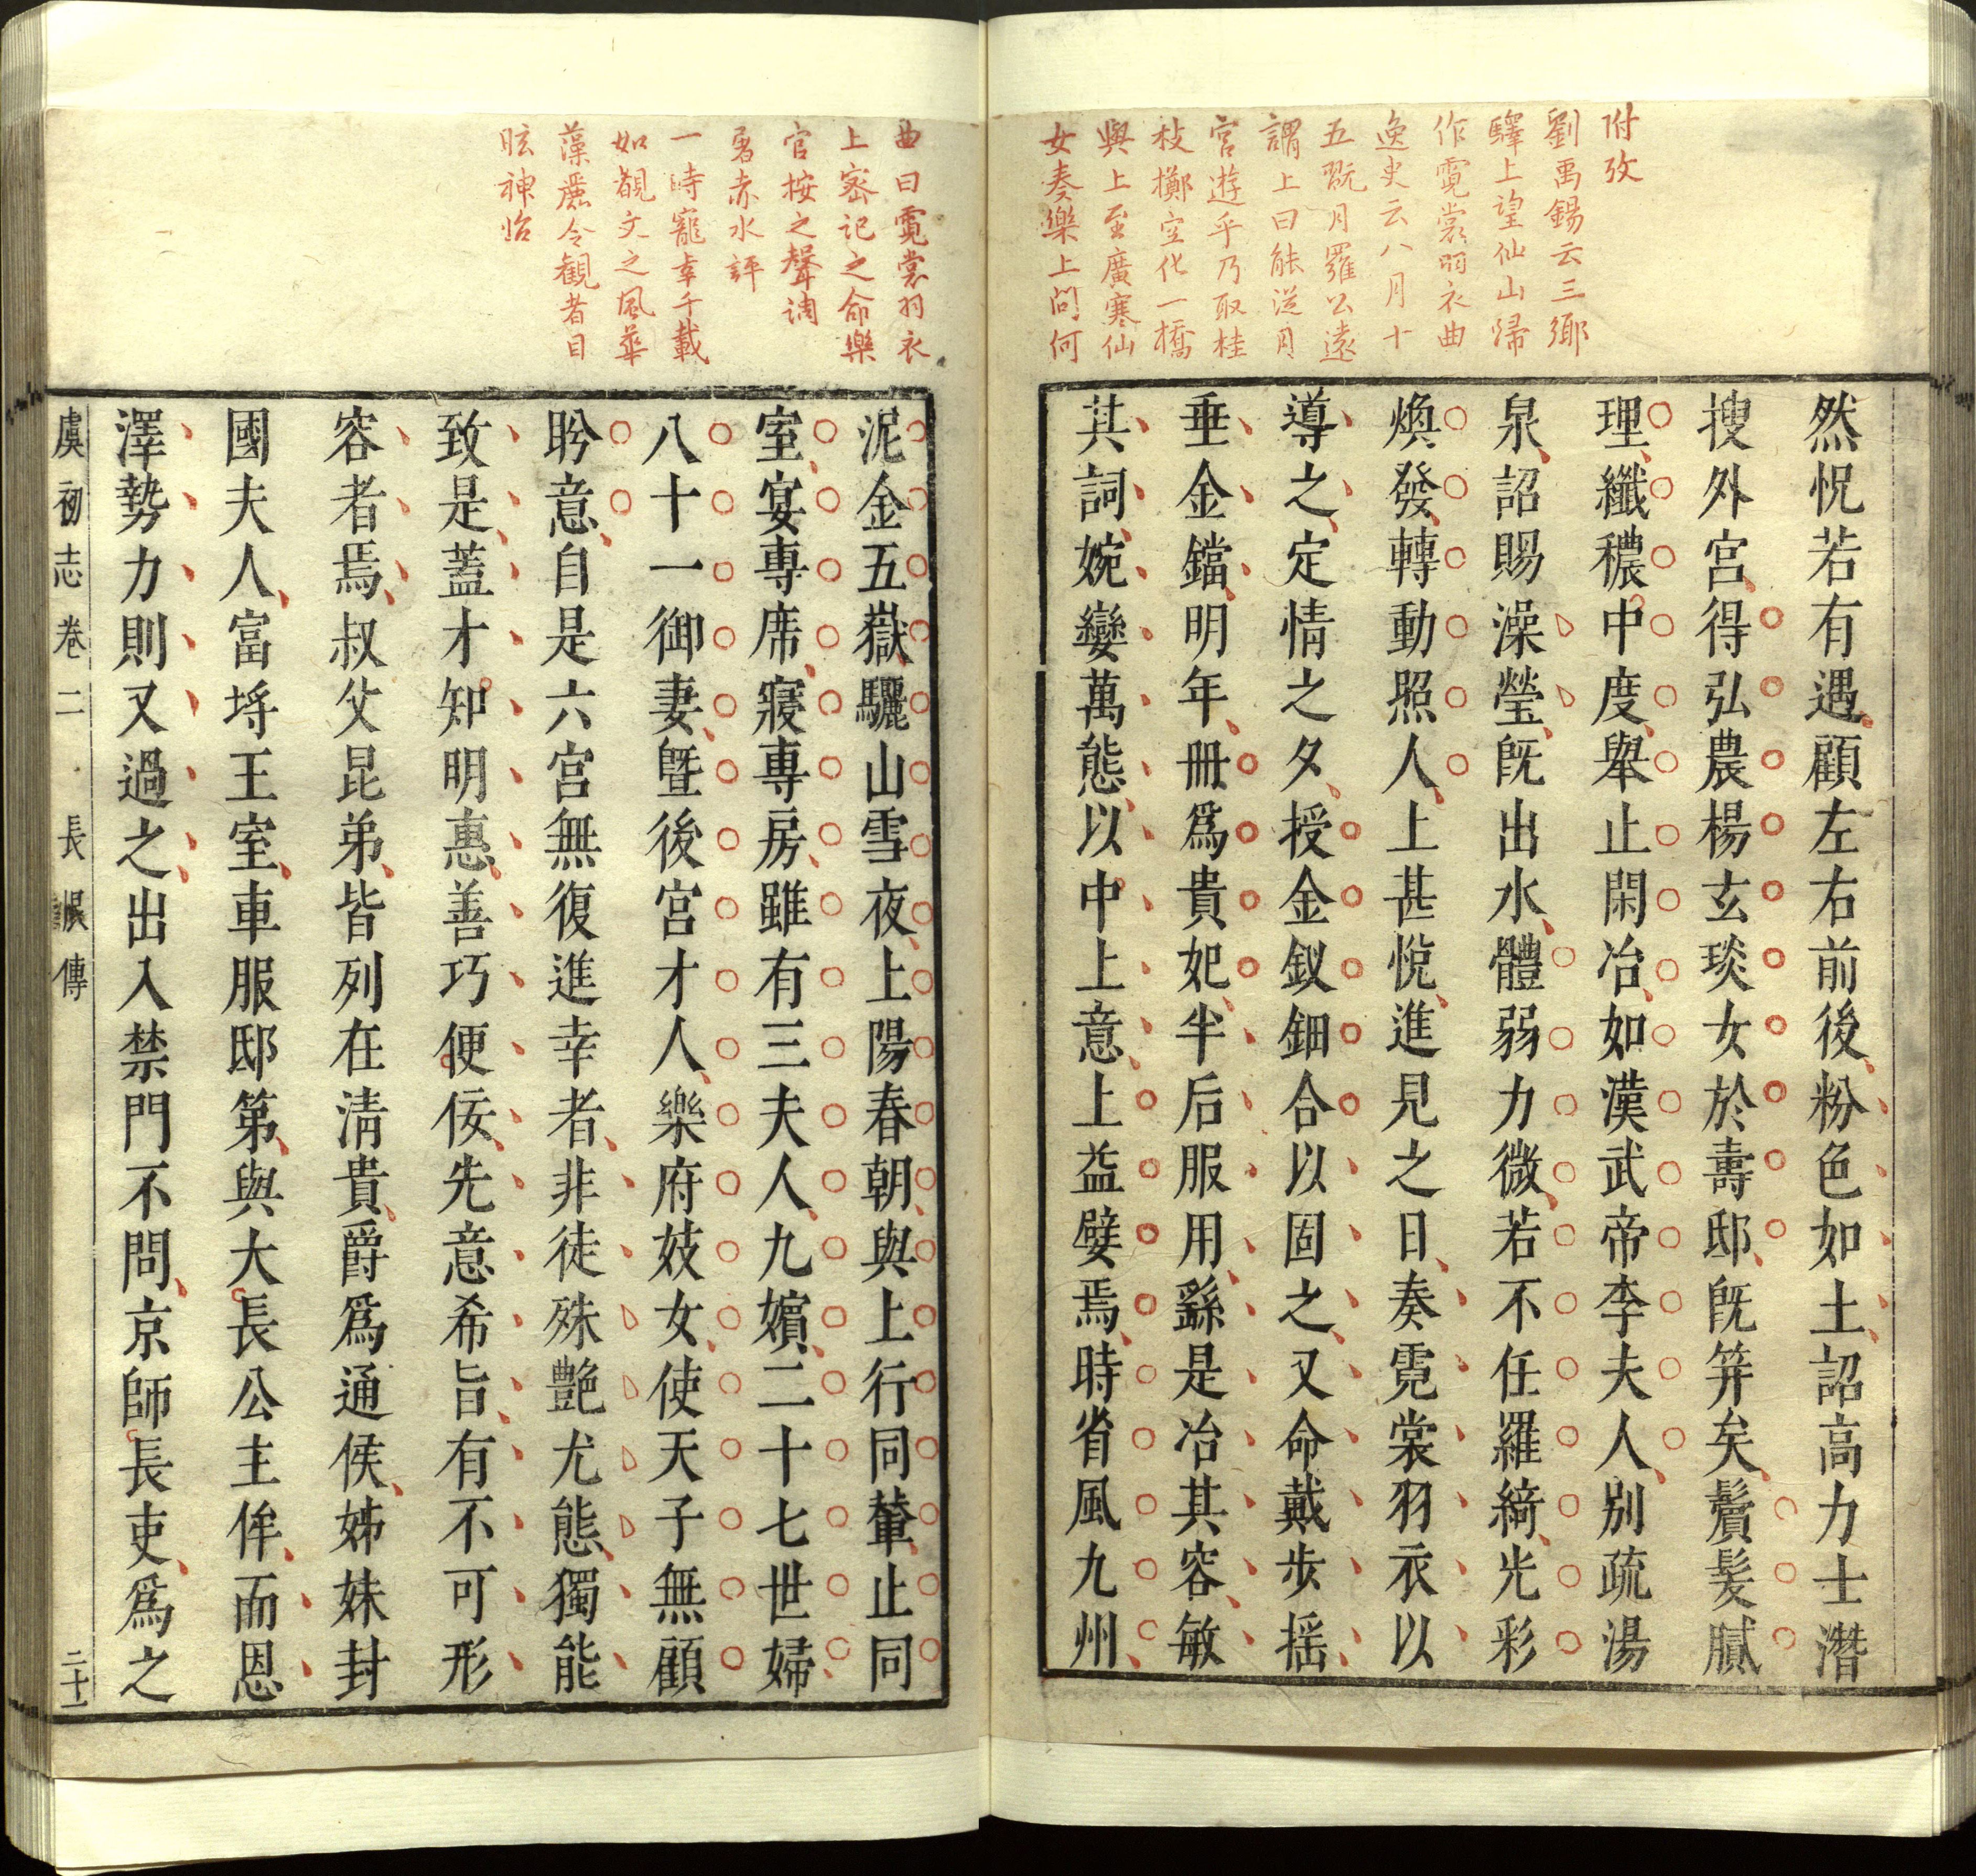 附攷
劉禹錫云三鄉
驛上望仙山歸
作霓裳羽衣曲
逸史云八月十
五翫月羅公遠
謂上曰能從月
宮遊乎乃取桂
枝擲空化一橋
與上至廣寒仙
女奏樂上問何
然怳若有遇顧左右前後粉色如土詔高力士潛
搜外宮得弘農楊玄琰女於壽邸旣筓矣鬢髮膩
理纖穠中度舉止閑冶如漢武帝李夫人別疏湯
泉詔賜澡瑩旣出水體弱力微若不任羅綺光彩
煥發轉動照人上甚悅進見之日奏霓裳羽衣以
導之定情之夕授金釵鈿合以固之又命戴步搖
垂金鐺明年冊爲貴妃半后服用繇是冶其容敏
其詞婉孌萬態以中上意上益嬖焉時省風九州
曲曰霓裳羽衣
上密記之命樂
官按之聲調
屠赤水評
一時寵幸千載
如覩文之風華
藻麗令觀者目
眩神怡
泥金五嶽驪山雪夜上陽春朝與上行同輦止同
室宴專席寢專房雖有三夫人九嬪二十七世婦
八十一御妻曁後宮才人樂府妓女使天子無顧
盻意自是六宮無復進幸者非徒殊艷尤態獨能
致是蓋才知明惠善巧便佞先意希旨有不可形
容者焉叔父昆弟皆列在淸貴爵爲通侯姊妹封
國夫人富埒王室車服邸第與大長公主侔而恩
澤勢力則又過之出入禁門不問京師長吏爲之
虞初志卷二 長恨傳 二十一